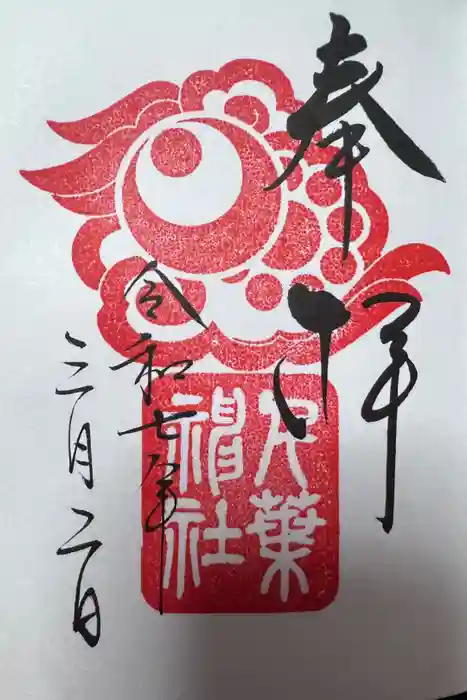 奉拝
千葉
神社
令和七年
三月二日